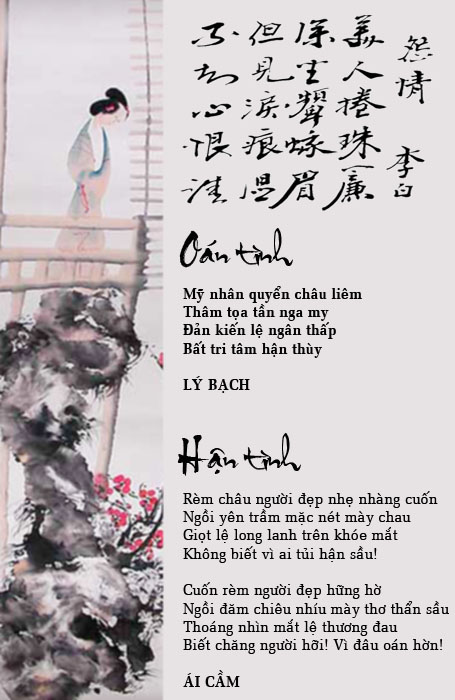 怨情
李白
美人捲珠廉
深坐顰蛾眉
但見淚痕湿
不知心恨誰
Oán tình
Mỹ nhân quyển châu liêm
Thâm tọa tần nga my
Đản kiến lệ ngân thấp
Bất tri tâm hận thùy
LÝ BẠCH
Hận tình
Rèm châu người đẹp nhẹ nhàng cuốn
Ngồi yên trầm mặc nét mày chau
Giọt lệ long lanh trên khóe mắt
Không biết vì ai tủi hận sầu!
Cuốn rèm người đẹp hững hờ
Ngồi đăm chiêu nhíu mày thơ thẩn sầu
Thoáng nhìn mắt lệ thương đau
Biết chăng người hỡi! Vì đâu oán hờn!
ÁI CẦM